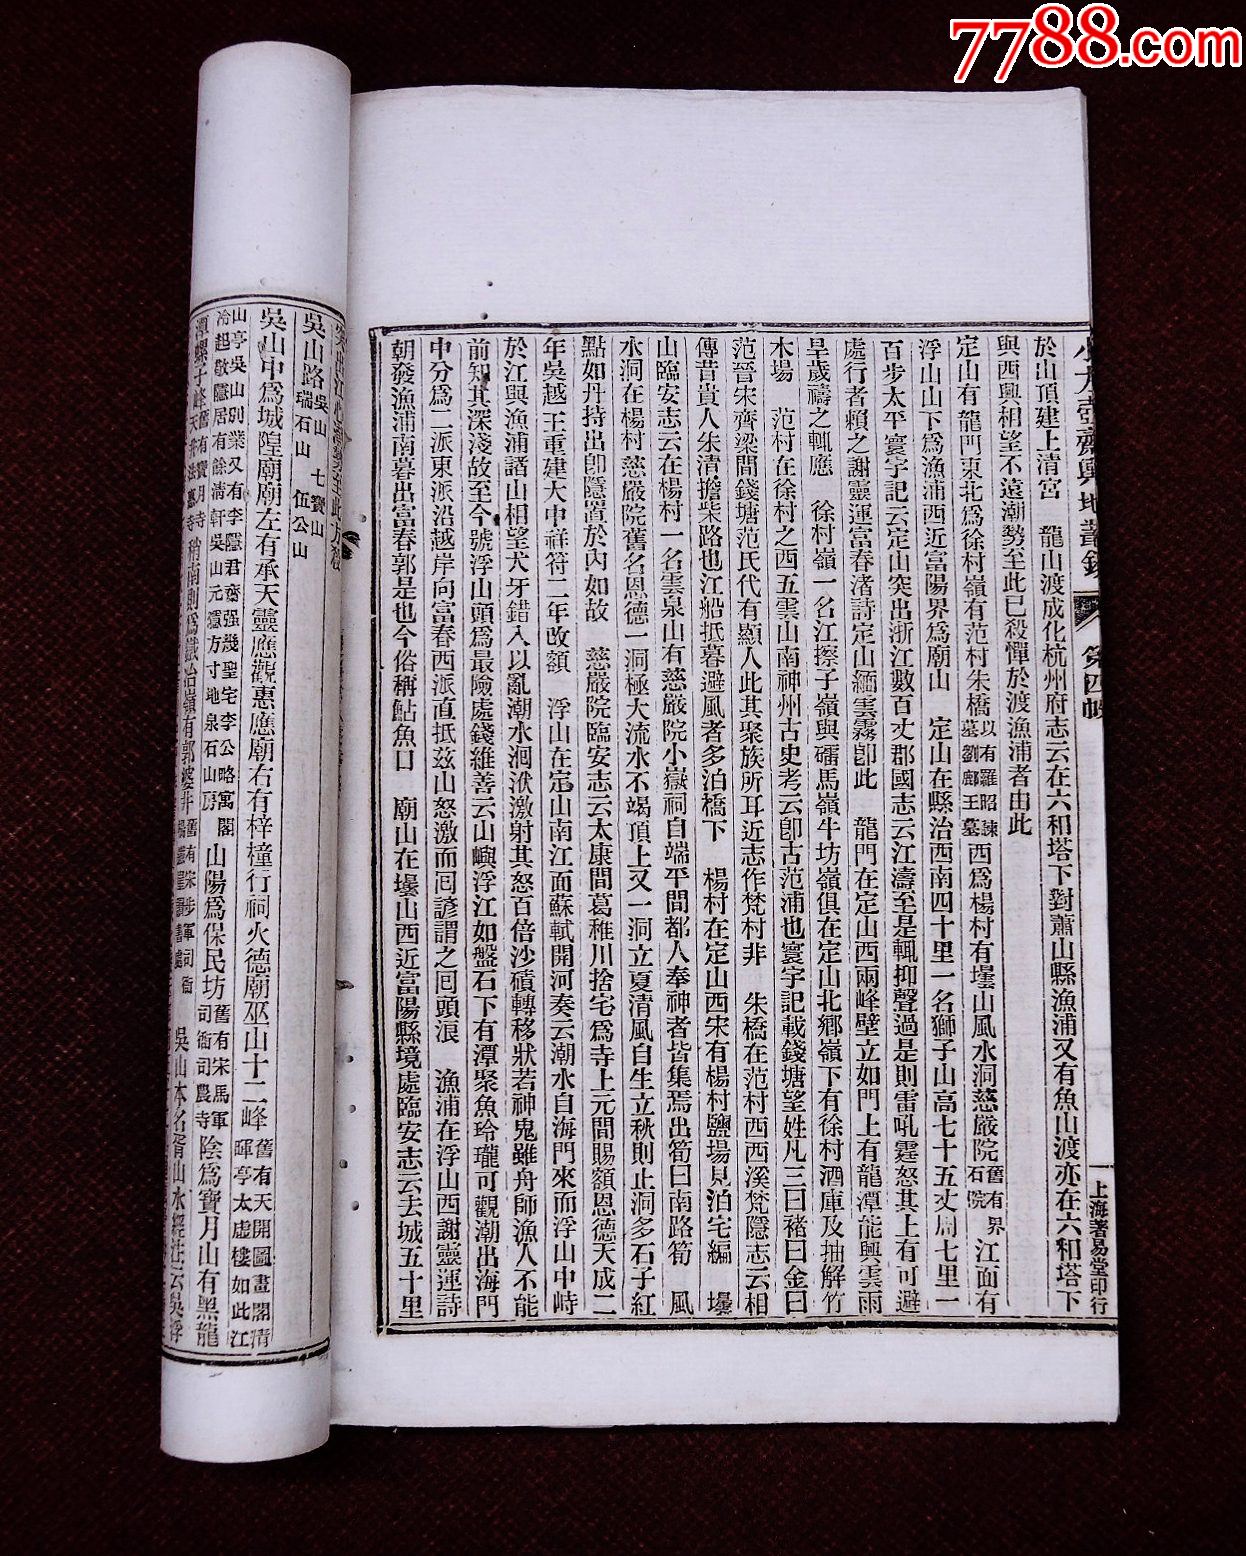 7788.com
小方壺齋輿地叢鈔
第四帙
上海著易堂印行
於山頂建上清宮　龍山渡成化杭州府志云在六和塔下對蕭山縣漁浦又有魚山渡亦在六和塔下
與西興相望不遠潮勢至此已殺憚於渡漁浦者由此
定山有龍門東北爲徐村嶺有范村朱橋以有羅昭諫墓劉鄜王墓西爲楊村有壜山風水洞慈嚴院舊有界石院江面有
浮山山下爲漁浦西近富陽界爲廟山　定山在縣治西南四十里一名獅子山高七十五丈周七里一
百步太平寰宇記云定山突出浙江數百丈郡國志云江濤至是輒抑聲過是則雷吼霆怒其上有可避
處行者賴之謝靈運富春渚詩定山緬雲霧卽此　龍門在定山西兩峰壁立如門上有龍潭能興雲雨
旱歲禱之輒應　徐村嶺一名江擦子嶺與礌馬嶺牛坊嶺俱在定山北鄉嶺下有徐村酒庫及抽解竹
木場　范村在徐村之西五雲山南神州古史考云卽古范浦也寰宇記載錢塘望姓凡三曰褚曰金曰
范晉宋齊梁間錢塘范氏代有顯人此其聚族所耳近志作梵村非　朱橋在范村西西溪梵隱志云相
傳昔貴人朱清擔柴路也江船抵暮避風者多泊橋下　楊村在定山西宋有楊村鹽場見泊宅編　壜
山臨安志云在楊村一名雲泉山有慈嚴院小嶽祠自端平間都人奉神者皆集焉出筍曰南路筍　風
水洞在楊村慈嚴院舊名恩德一洞極大流水不竭頂上又一洞立夏清風自生立秋則止洞多石子紅
點如丹持出卽隱置於內如故　慈嚴院臨安志云太康間葛稚川捨宅爲寺上元間賜額恩德天成二
年吳越王重建大中祥符二年改額　浮山在定山南江面蘇軾開河奏云潮水自海門來而浮山中峙
於江與漁浦諸山相望犬牙錯入以亂潮水洄洑激射其怒百倍沙磧轉移狀若神鬼雖舟師漁人不能
前知其深淺故至今號浮山頭爲最險處錢維善云山嶼浮江如盤石下有潭聚魚玲瓏可觀潮出海門
中分爲二派東派沿越岸向富春西派直抵茲山怒激而囘諺謂之囘頭浪　漁浦在浮山西謝靈運詩
朝發漁浦南暮出富春郭是也今俗稱鮎魚口　廟山在壜山西近富陽縣境處臨安志云去城五十里
吳山路吳山　七寶山瑞石山　伍公山
吳山中爲城隍廟廟左有承天靈應觀惠應廟右有梓橦行祠火德廟巫山十二峰舊有天開圖畫閣清暉亭太虛樓如此江
山亭吳山別業又有李隱君齋强幾聖宅李公略寓閣冷起敬隱居有餘清軒吳山元儒方寸地泉石山房山陽爲保民坊舊有宋馬軍司衙司農寺陰爲寶月山有黑龍